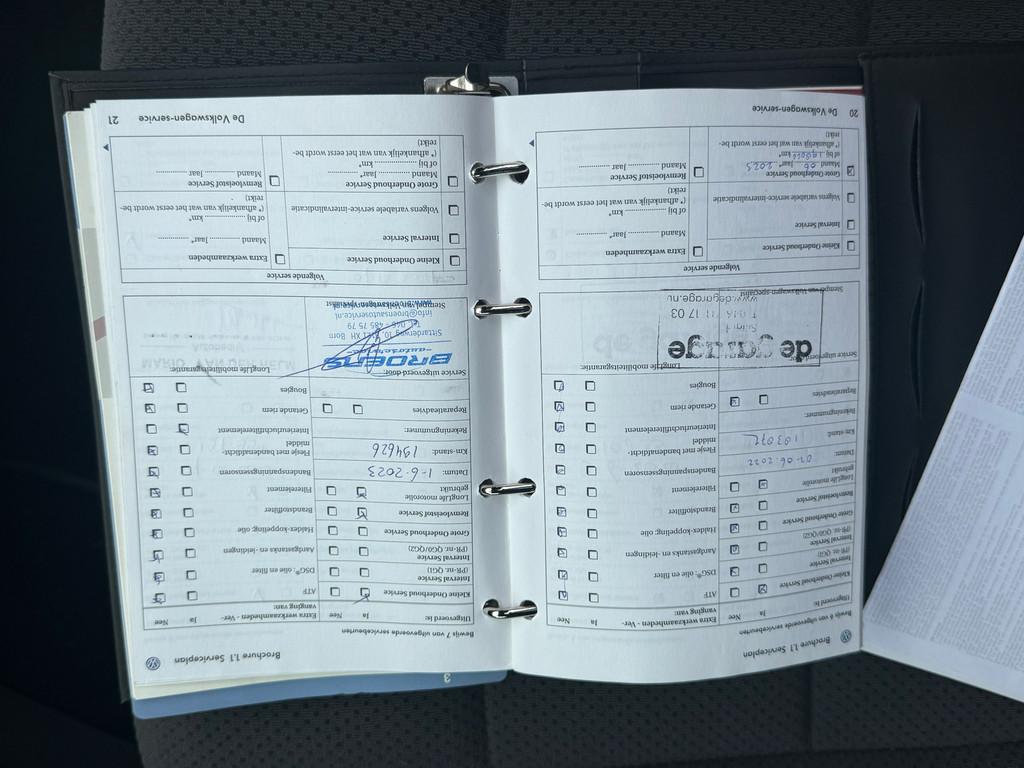 Brochure 1.1 Serviceplan
Bewijs 6 van uitgevoerde servicebeurten
Uitgevoerd is: Ja Nee
Extra werkzaamheden - Ver-
vanging van: Ja Nee
Kleine Onderhoud Service
Interval Service
(PR-nr. QG1)
Interval Service
(PR-nr. QG0/QG2)
Grote Onderhoud Service
Remvloeistof Service
LongLife motorolie
gebruikt
Datum: 02-06-2022
Km-stand:
Rekeningnummer:
Reparatieadvies
ATF
DSG®, olie en filter
Aardgastanks en- leidingen
Haldex-koppeling olie
Brandstoffilter
Filterelement
Bandenspanningssensoren
Flesje met bandendicht-
middel
Interieurluchtfilterelement
Getande riem
Bougies
Service uitgevoerd door:
LongLife mobiliteitsgarantie:
de garage
17 03
www.degarage.nl
Stempel van Volkswagen-specialist
Volgende service
Kleine Onderhoud Service
Interval Service
Volgens variabele service-intervalindicatie
Grote Onderhoud Service
Maand 06 Jaar* 2023
of bij km*
(* afhankelijk van wat het eerst wordt be-
reikt)
Extra werkzaamheden
Maand Jaar*
of bij km*
(* afhankelijk van wat het eerst wordt be-
reikt)
Remvloeistof Service
Maand Jaar
20 De Volkswagen-service
3
Brochure 1.1 Serviceplan
Bewijs 7 van uitgevoerde servicebeurten
Uitgevoerd is: Ja Nee
Extra werkzaamheden - Ver-
vanging van: Ja Nee
Kleine Onderhoud Service
Interval Service
(PR-nr. QG1)
Interval Service
(PR-nr. QG0/QG2)
Grote Onderhoud Service
Remvloeistof Service
LongLife motorolie
gebruikt
Datum: 1-6-2023
Km-stand: 194626
Rekeningnummer:
Reparatieadvies
ATF
DSG®, olie en filter
Aardgastanks en- leidingen
Haldex-koppeling olie
Brandstoffilter
Filterelement
Bandenspanningssensoren
Flesje met bandendicht-
middel
Interieurluchtfilterelement
Getande riem
Bougies
Service uitgevoerd door:
LongLife mobiliteitsgarantie:
BROENS
-autoservice-
Sittarderweg 10, 6121 XH Born
T. 046 - 485 75 79
info@broensautoservice.nl
www.Broensautoservice.nl
Stempel van Volkswagen-specialist
Volgende service
Kleine Onderhoud Service
Interval Service
Volgens variabele service-intervalindicatie
Grote Onderhoud Service
Maand Jaar*
of bij km*
(* afhankelijk van wat het eerst wordt be-
reikt)
Extra werkzaamheden
Maand Jaar*
of bij km*
(* afhankelijk van wat het eerst wordt be-
reikt)
Remvloeistof Service
Maand Jaar
De Volkswagen-service 21